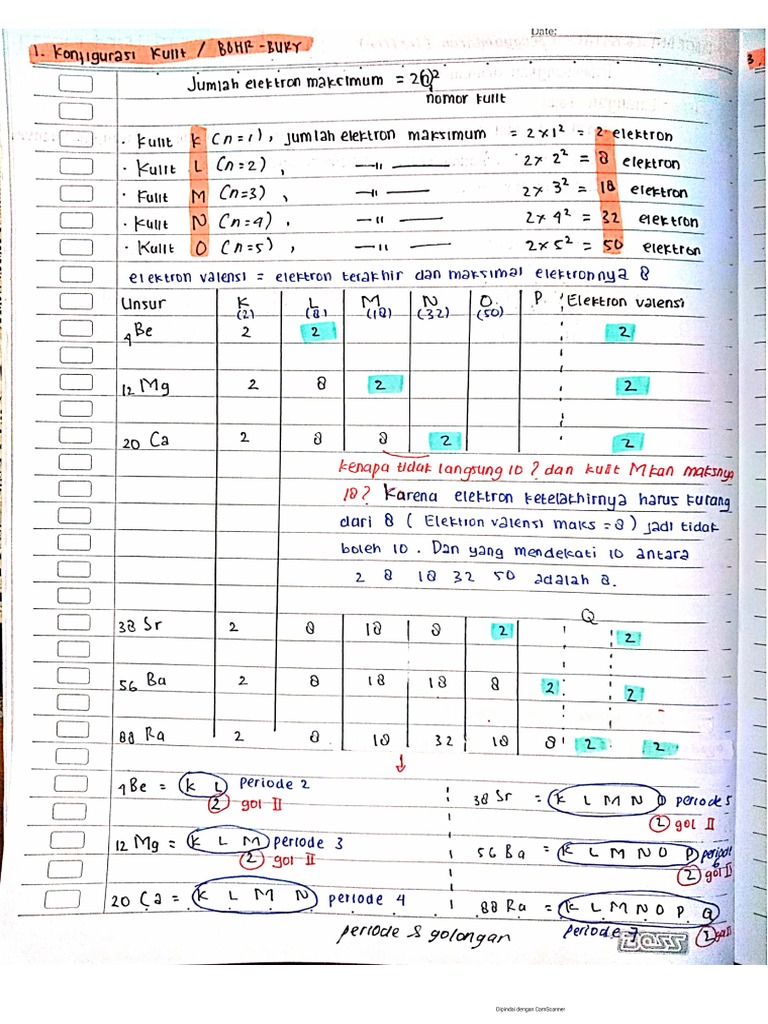 Date:
1. Konfigurasi Kulit / BOHR-BURY
Jumlah elektron maksimum = 2n²
nomor kulit
· Kulit K (n=1), jumlah elektron maksimum = 2×1² = 2 elektron
· Kulit L (n=2), —"— 2× 2² = 8 elektron
· Kulit M (n=3), —"— 2× 3² = 18 elektron
· Kulit N (n=4), —"— 2×4² = 32 elektron
· Kulit O (n=5), —"— 2×5² = 50 elektron
elektron valensi = elektron terakhir dan maksimal elektronnya 8
Unsur K L M N O P Elektron valensi
(2) (8) (18) (32) (50)
4 Be 2 2 2
12 Mg 2 8 2 2
20 Ca 2 8 8 2 2
kenapa tidak langsung 10? dan kulit M kan maksnya
18? Karena elektron keterakhirnya harus kurang
dari 8 (Elektron valensi maks = 8) jadi tidak
boleh 10. Dan yang mendekati 10 antara
2 8 18 32 50 adalah 8.
Q
38 Sr 2 8 18 8 2 2
56 Ba 2 8 18 18 8 2 2
88 Ra 2 8 18 32 18 8 2 2
4Be = K L periode 2
2 gol II
12 Mg = K L M periode 3
2 gol II
20 Ca = K L M N periode 4
38 Sr = K L M N O periode 5
2 gol II
56 Ba = K L M N O P periode 6
2 gol II
88 Ra = K L M N O P Q
periode 7 2 gol II
periode & golongan
Dipindai dengan CamScanner